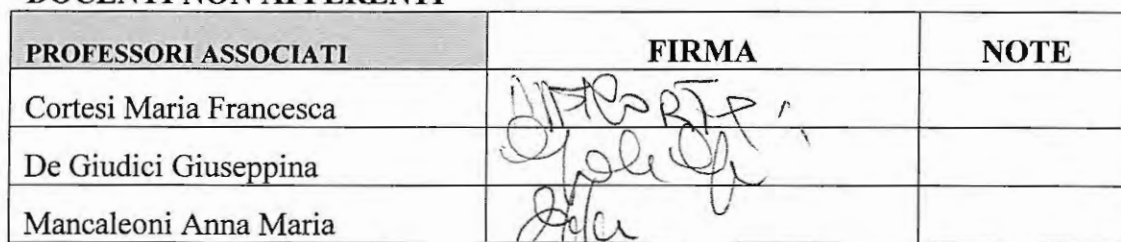 DOCENTI NON AFFERENTI
PROFESSORI ASSOCIATI FIRMA NOTE
Cortesi Maria Francesca
De Giudici Giuseppina
Mancaleoni Anna Maria